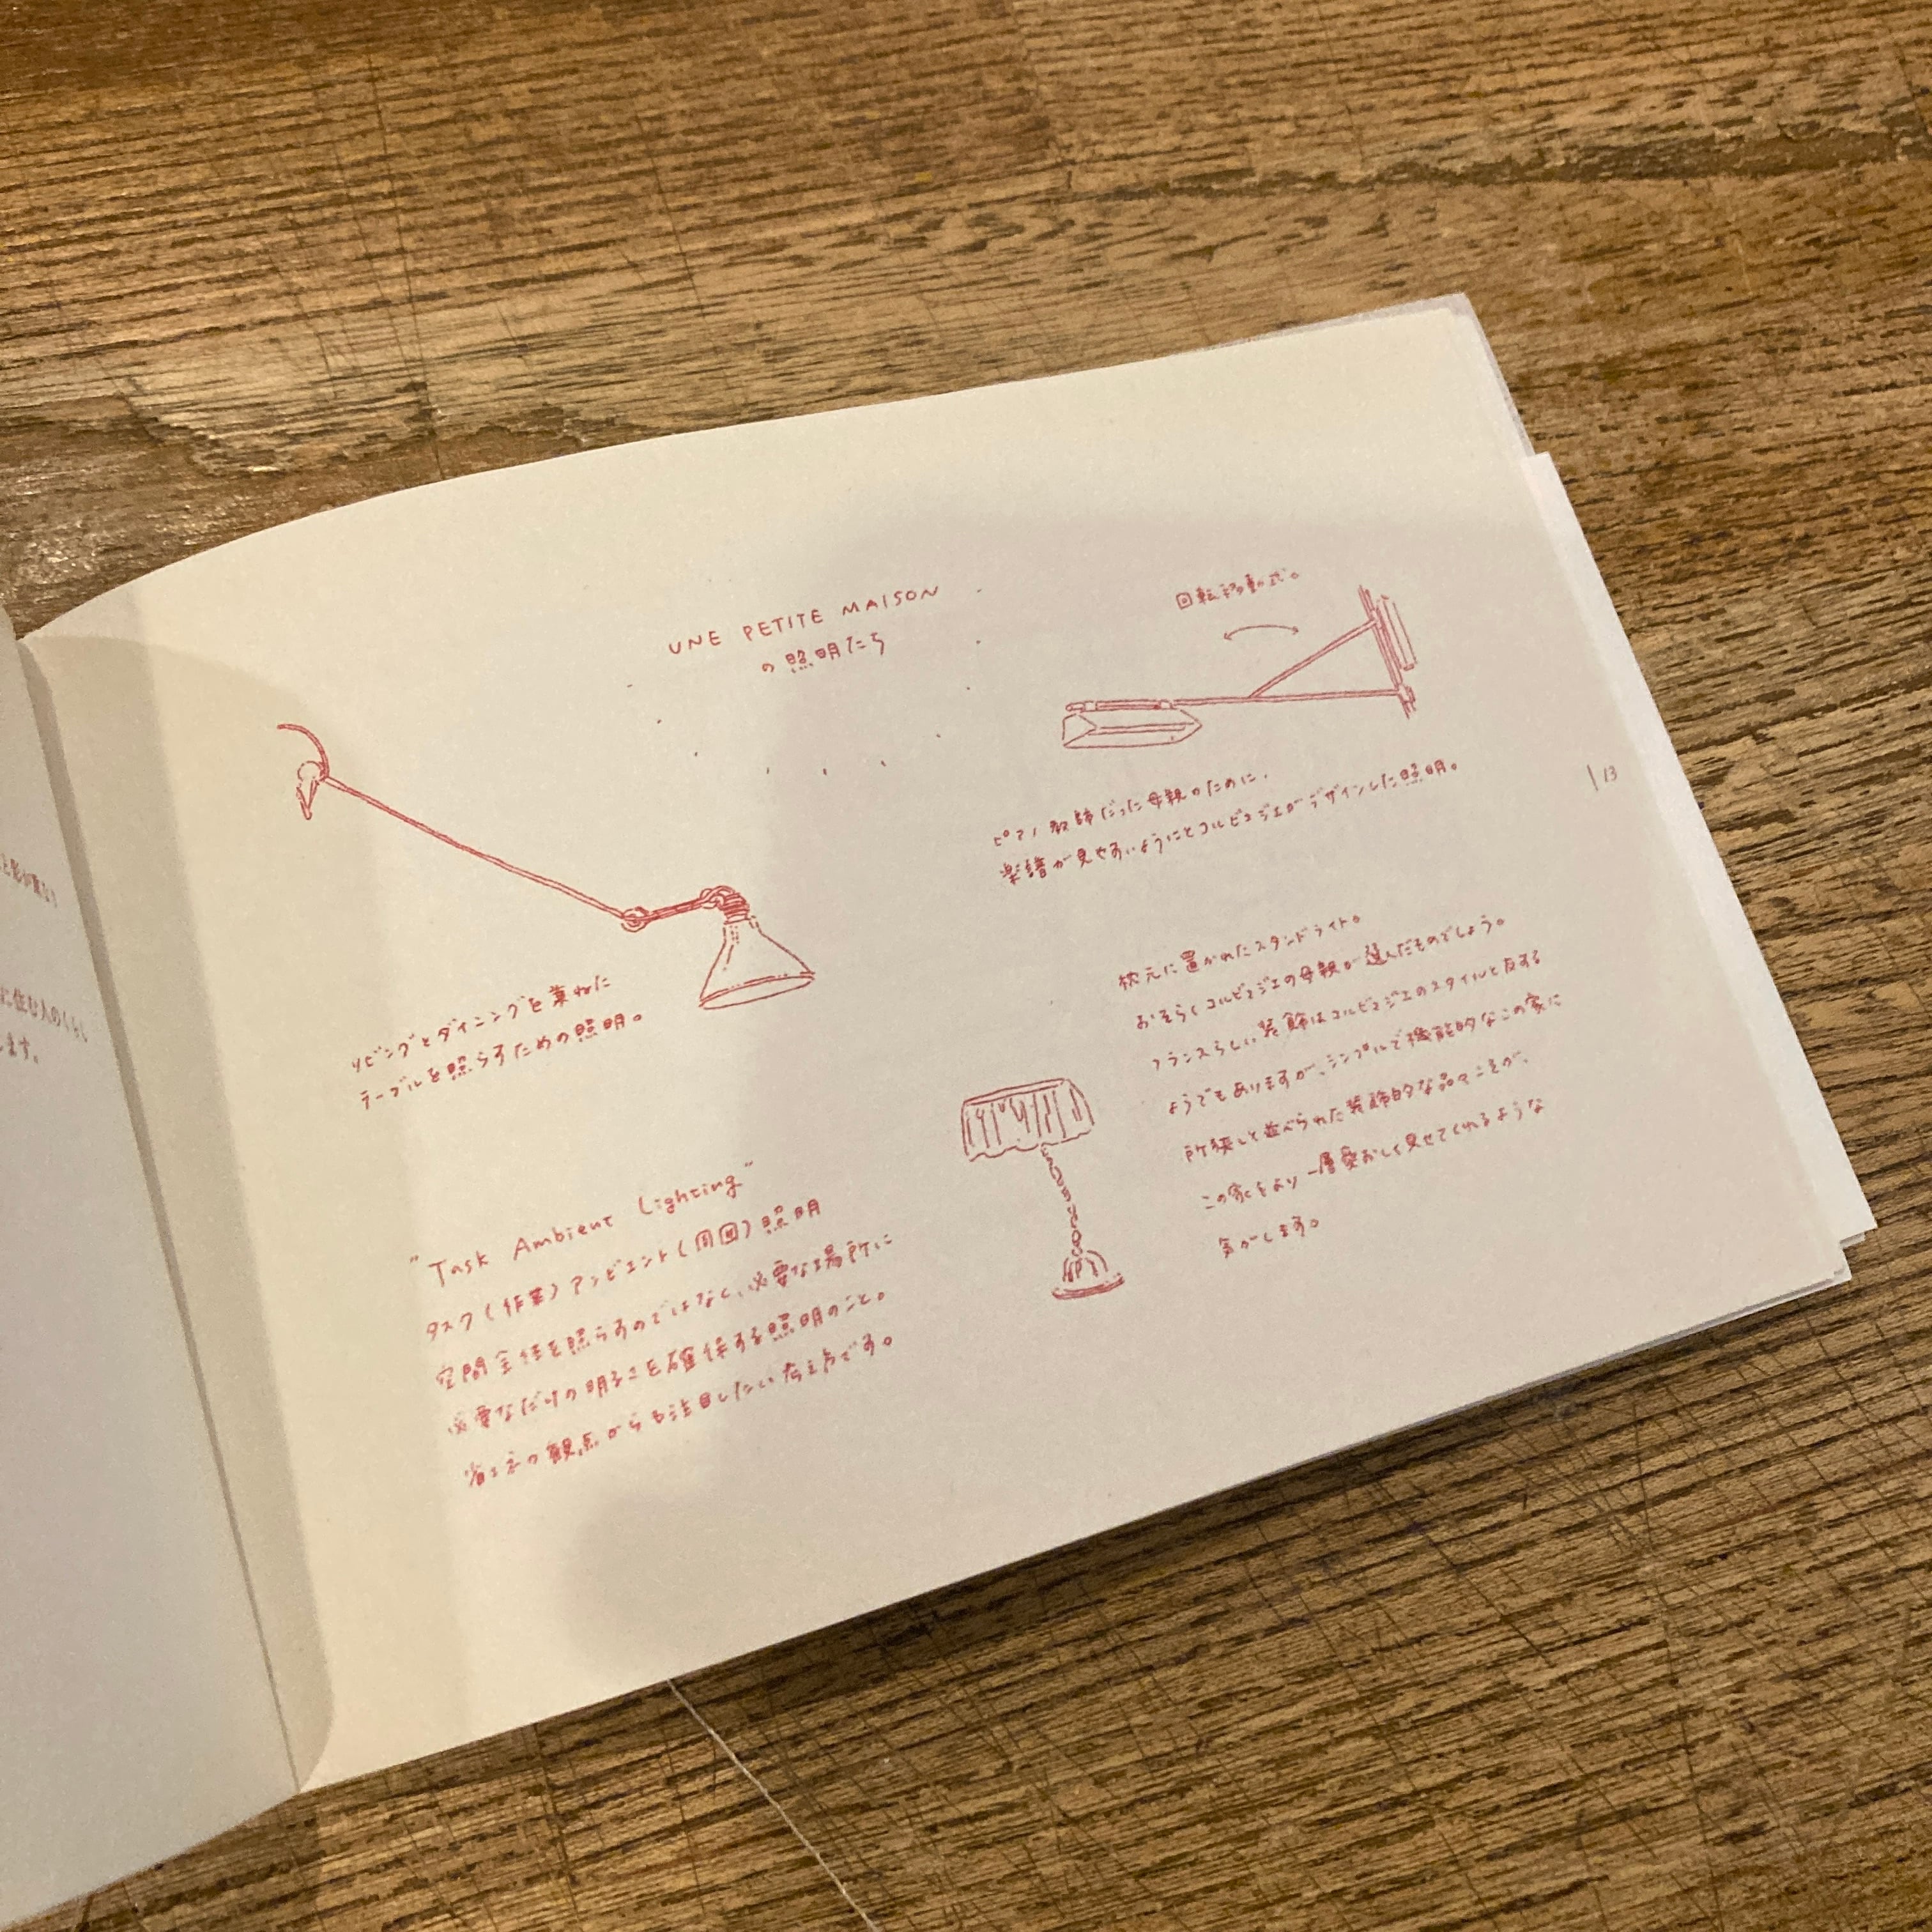 UNE PETITE MAISON
の照明たち
リビングとダイニングを兼ねた
テーブルを照らすための照明。
"Task Ambient Lighting"
タスク(作業)アンビエント(周囲)照明
空間全体を照らすのではなく、必要な場所に
必要なだけの明るさを確保する照明のこと。
省エネの観点からも注目したい考え方です。
回転移動式。
ピアノ教師だった母親のために、
楽譜が見やすいようにとコルビュジエがデザインした照明。
枕元に置かれたスタンドライト。
おそらくコルビュジエの母親が選んだものでしょう。
フランスらしい装飾はコルビュジエのスタイルと反する
ようでもありますが、シンプルで機能的なこの家に
所狭しと並べられた装飾的な品々こそが、
この家をより一層愛おしく見せてくれるような
気がします。
13
に住む人のくらし
します。